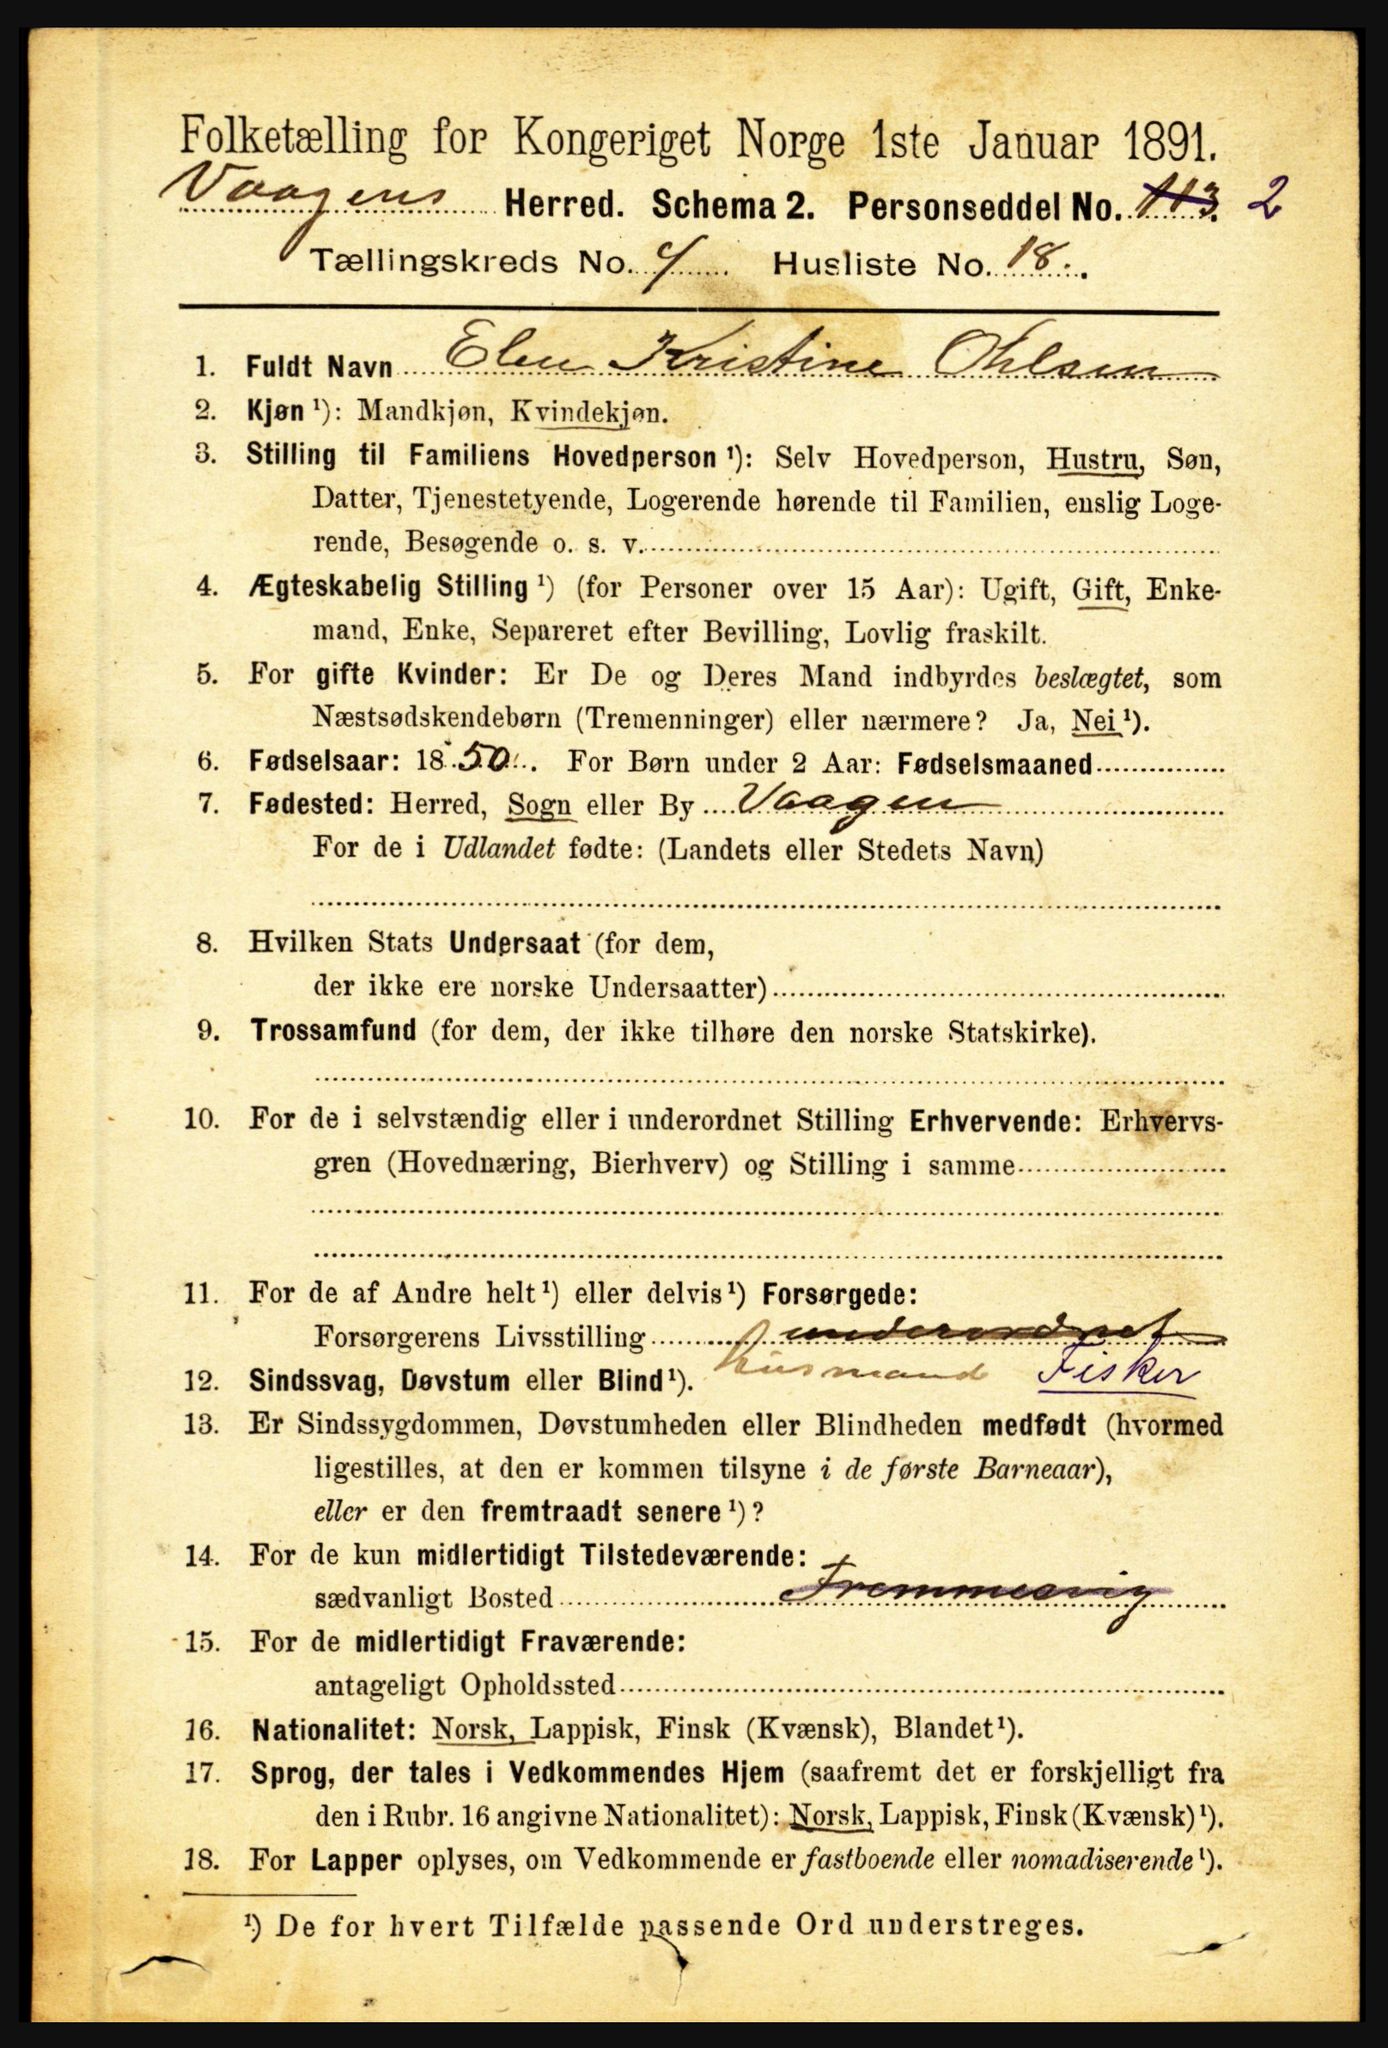 Folketælling for Kongeriget Norge 1ste Januar 1891.
Vaagens Herred. Schema 2. Personseddel No. 113. 2
Tællingskreds No. 4 Husliste No. 18.
1. Fuldt Navn Elen Kristine Ohlsen
2. Kjøn ¹): Mandkjøn, Kvindekjøn.
3. Stilling til Familiens Hovedperson ¹): Selv Hovedperson, Hustru, Søn,
Datter, Tjenestetyende, Logerende hørende til Familien, enslig Loge-
rende, Besøgende o. s. v.
4. Ægteskabelig Stilling ¹) (for Personer over 15 Aar): Ugift, Gift, Enke-
mand, Enke, Separeret efter Bevilling, Lovlig fraskilt.
5. For gifte Kvinder: Er De og Deres Mand indbyrdes beslægtet, som
Næstsødskendebørn (Tremenninger) eller nærmere? Ja, Nei ¹).
6. Fødselsaar: 1850. For Børn under 2 Aar: Fødselsmaaned
7. Fødested: Herred, Sogn eller By Vaagen
For de i Udlandet fødte: (Landets eller Stedets Navn)
8. Hvilken Stats Undersaat (for dem,
der ikke ere norske Undersaatter)
9. Trossamfund (for dem, der ikke tilhøre den norske Statskirke).
10. For de i selvstændig eller i underordnet Stilling Erhvervende: Erhvervs-
gren (Hovednæring, Bierhverv) og Stilling i samme
11. For de af Andre helt ¹) eller delvis ¹) Forsørgede:
Forsørgerens Livsstilling underordnet
12. Sindssvag, Døvstum eller Blind ¹). Husmand Fisker
13. Er Sindssygdommen, Døvstumheden eller Blindheden medfødt (hvormed
ligestilles, at den er kommen tilsyne i de første Barneaar),
eller er den fremtraadt senere ¹)?
14. For de kun midlertidigt Tilstedeværende:
sædvanligt Bosted
15. For de midlertidigt Fraværende:
antageligt Opholdssted
16. Nationalitet: Norsk, Lappisk, Finsk (Kvænsk), Blandet ¹).
17. Sprog, der tales i Vedkommendes Hjem (saafremt det er forskjelligt fra
den i Rubr. 16 angivne Nationalitet): Norsk, Lappisk, Finsk (Kvænsk) ¹).
18. For Lapper oplyses, om Vedkommende er fastboende eller nomadiserende ¹).
¹) De for hvert Tilfælde passende Ord understreges.